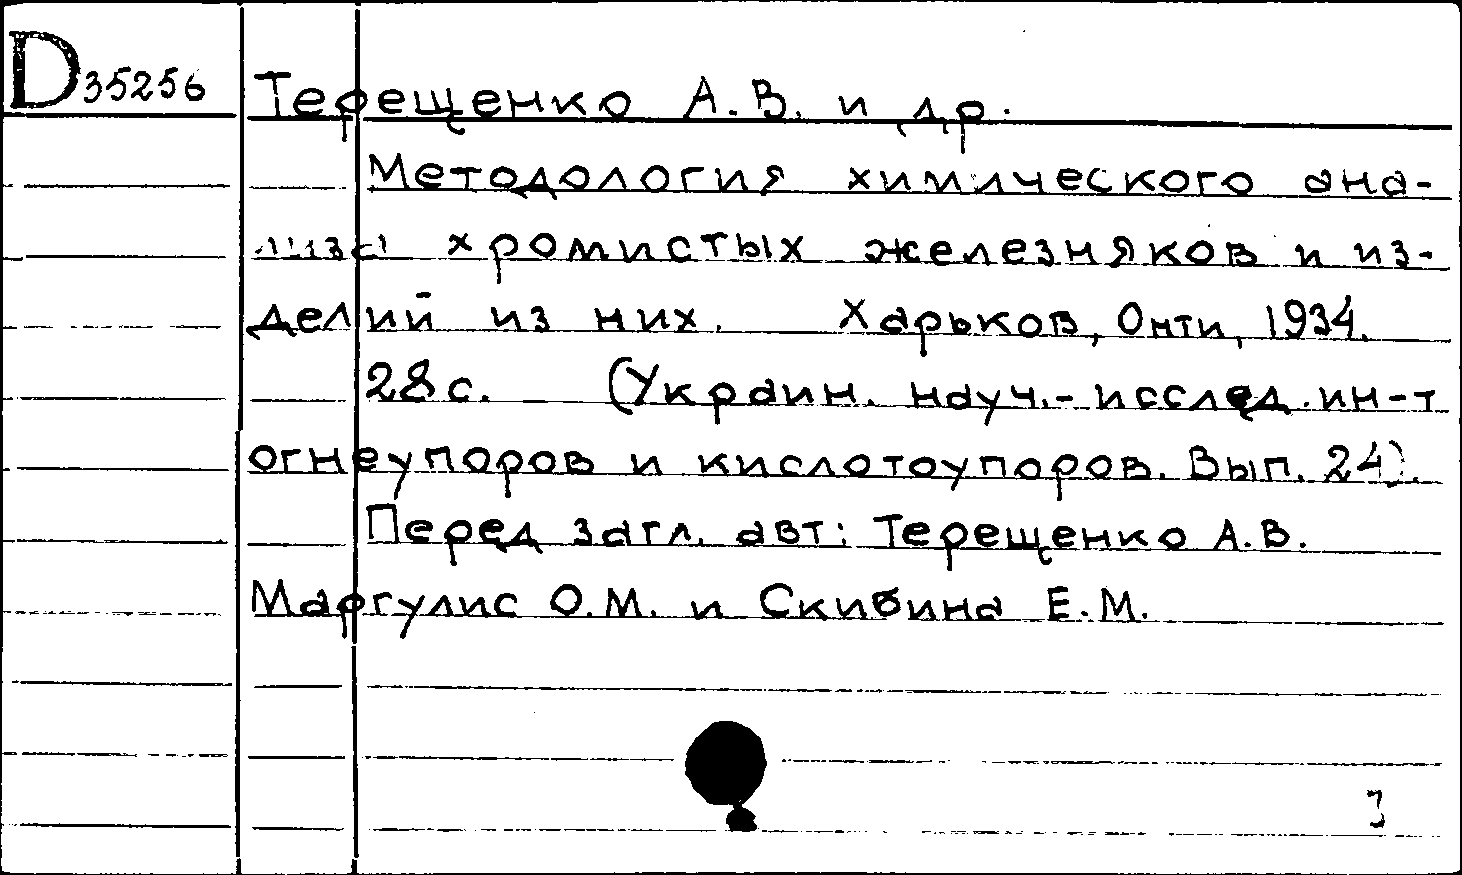 D 35256 Терещенко А.В. и др.
Методология химического ана-
лиза хромистых железняков и из-
делий из них. Харьков, Онти, 1934.
28 с. (Украин. науч.-исслед. ин-т
огнеупоров и кислотоупоров. Вып. 24).
Перед загл. авт: Терещенко А.В.
Маргулис О.М. и Скибина Е.М.